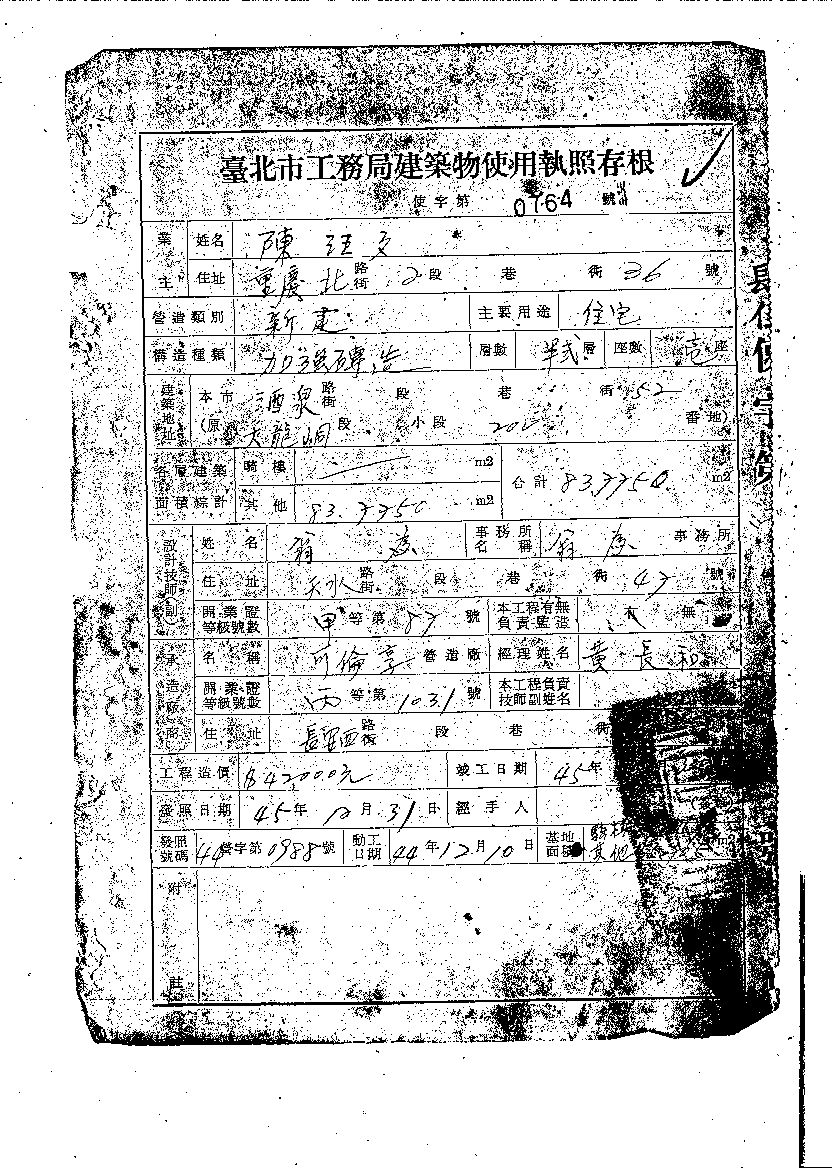 臺北市工務局建築物使用執照存根
使字第 0764 號
業主 姓名 陳 廷 文
住址 重慶北 路街 2 段 巷 街 36 號
營造類別 新建 主要用途 住宅
構造種類 加強磚造 層數 層 座數 壱 座
建築地址 本市 酒泉 路街 段 巷 街 52
(原 大龍峒 段 小段 200 番地)
各層建築面積綜計 騎樓 m2 合計 83.3350 m2
其他 83.3350 m2
設計技師(副) 姓名 翁 事務所名稱 翁 事務所
住址 天水 路街 段 巷 街 47 號
開業證等級號數 甲 等第 87 號 本工程有無負責監造 有 無
承造廠商 名稱 可倫享 營造廠 經理姓名 黃長和
開業證等級號數 丙 等第 1031 號 本工程負責技師副姓名
住址 長安西 路街 段 巷 街
工程造價 $42000元 竣工日期 45年
發照日期 45年 12月 31日 經手人
發照號碼 44 營字第 0988 號 動工日期 44年12月10日 基地面積 騎樓 其他
附註